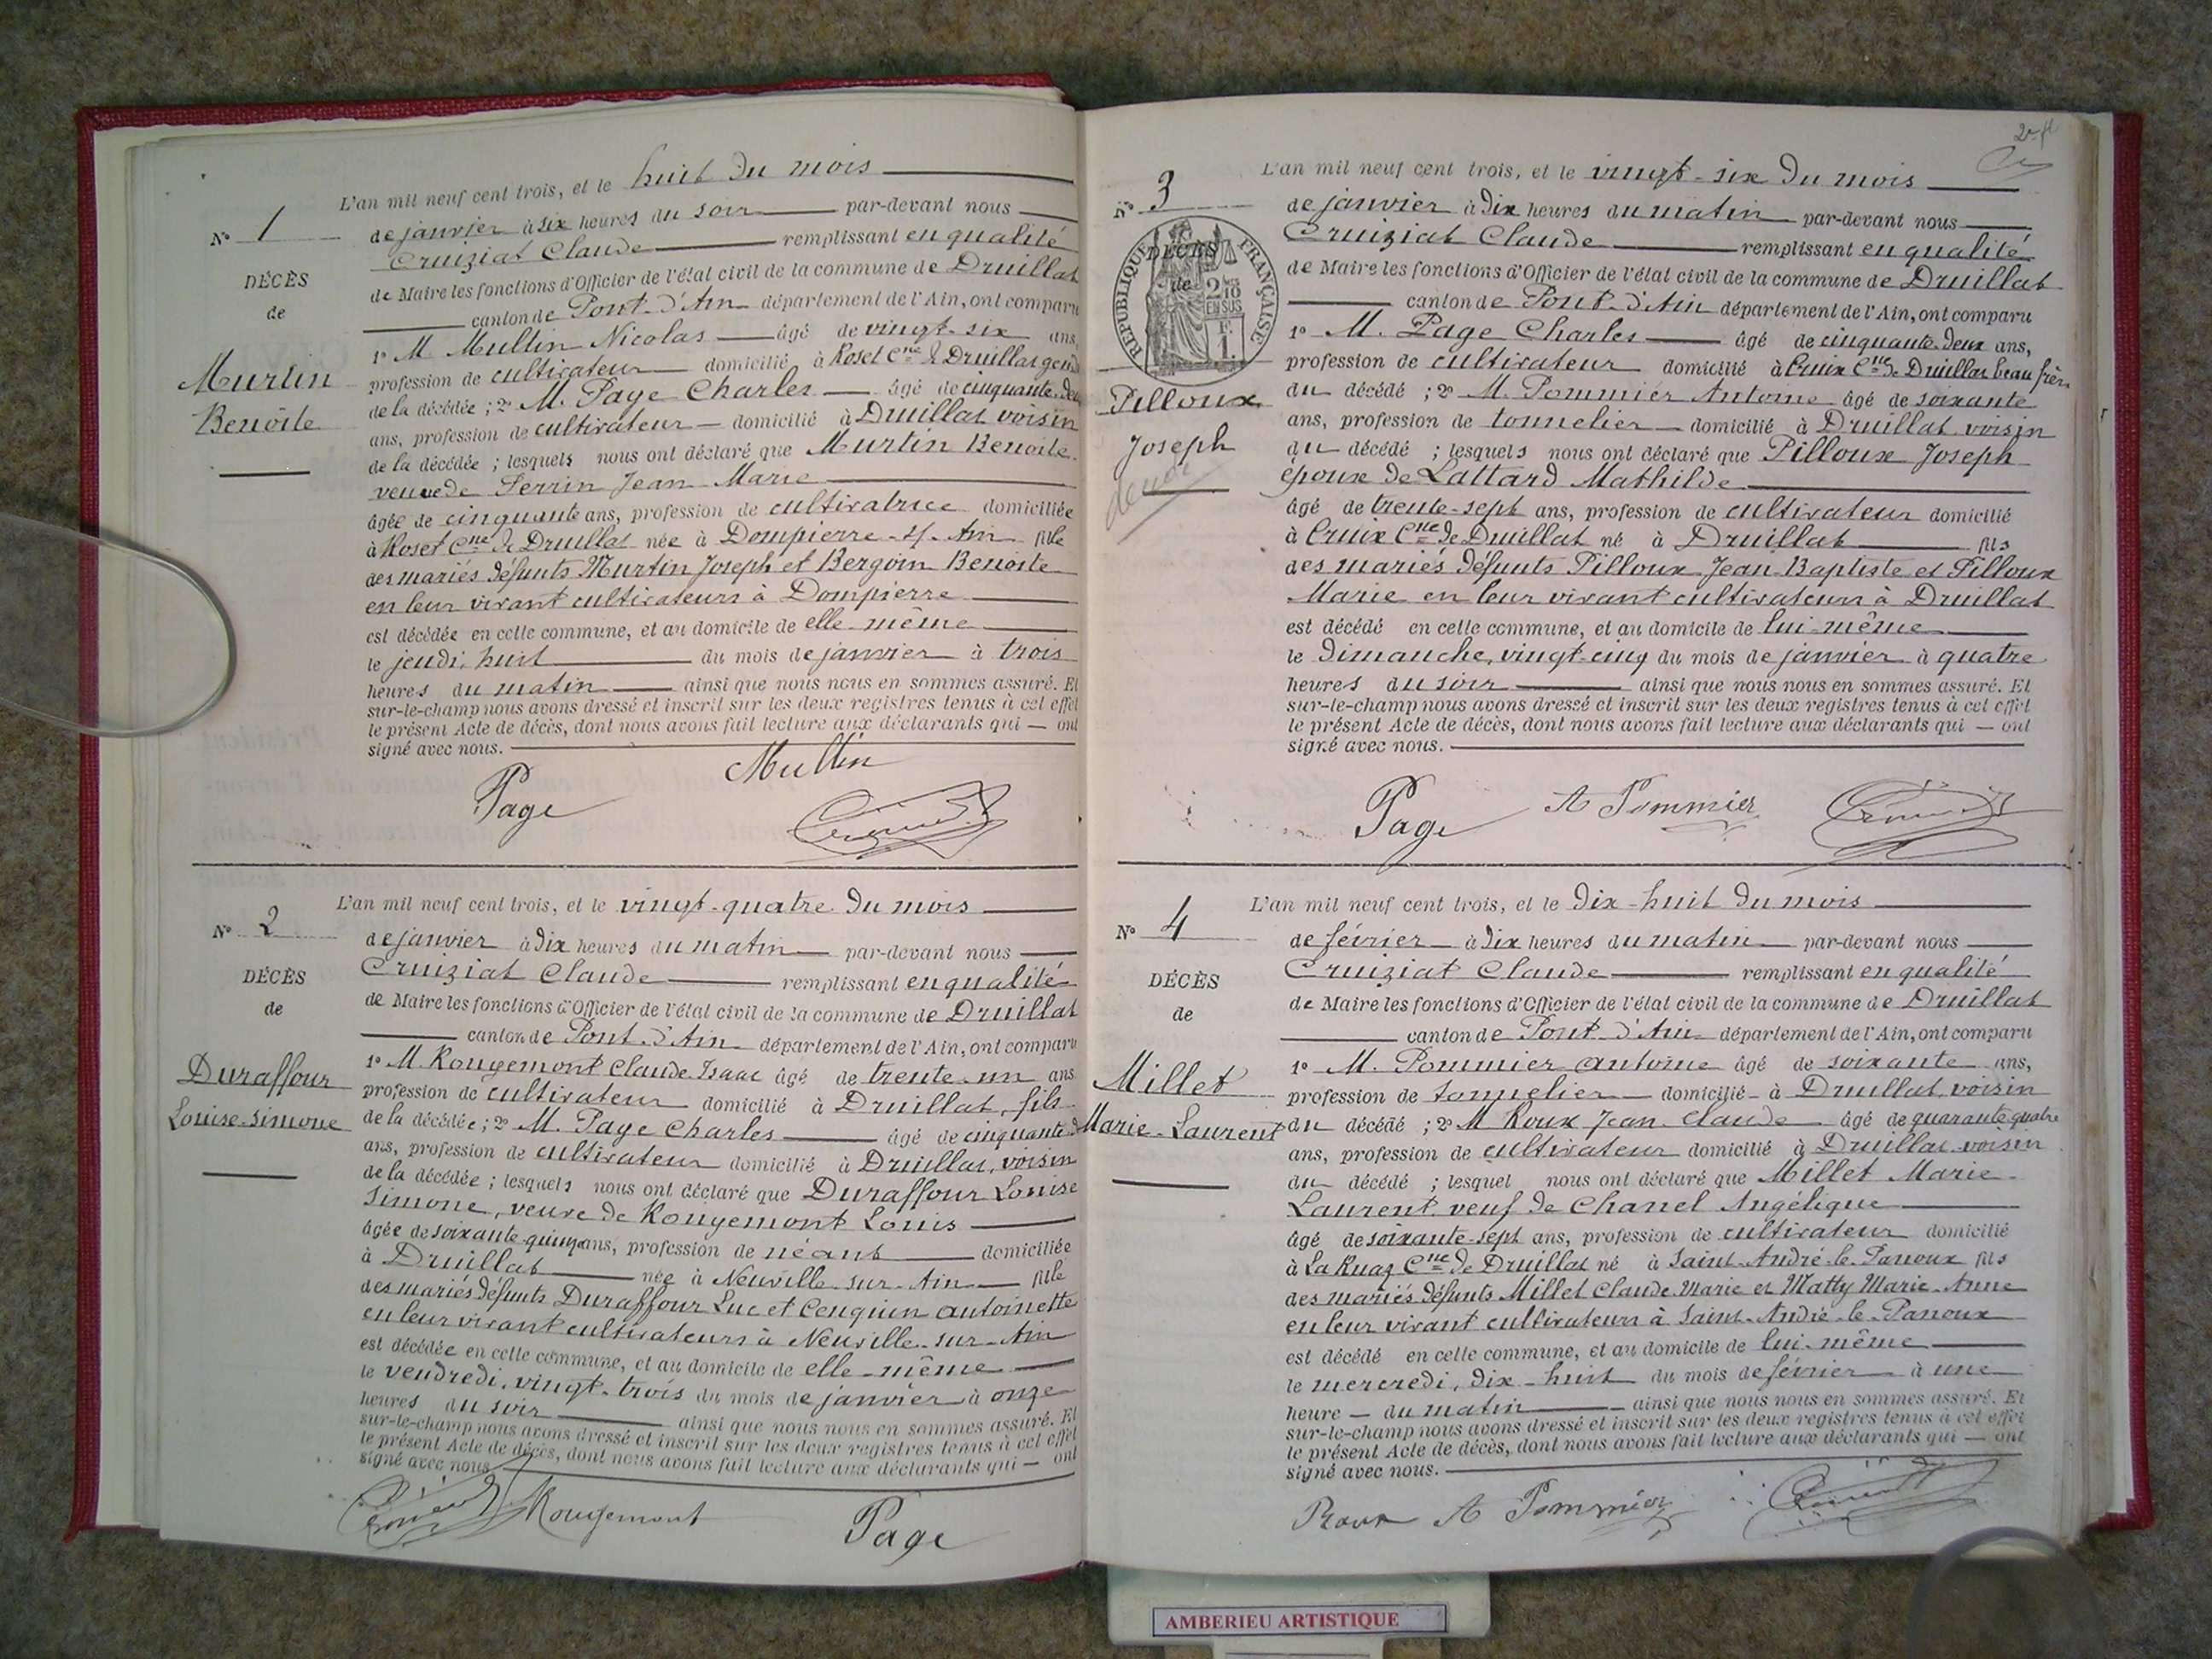 L'an mil neuf cent trois, et le huit du mois
N° 1
de janvier à six heures du soir par-devant nous
Cruiziat Claude remplissant en qualité
DÉCÈS
de Maire les fonctions d'Officier de l'état civil de la commune de Druillat
de
canton de Pont-d'Ain département de l'Ain, ont comparu
1° M Mullin Nicolas âgé de vingt-six ans,
Murtin
profession de cultivateur domicilié à Roset Cne de Druillat gendre
de la décédée ; 2° M. Page Charles âgé de cinquante-deux
Benoîte
ans, profession de cultivateur domicilié à Druillat voisin
de la décédée ; lesquels nous ont déclaré que Murtin Benoîte
veuve de Perrin Jean Marie
âgée de cinquante ans, profession de cultivatrice domiciliée
à Roset Cne de Druillat née à Dompierre-s/-Ain fille
des mariés défunts Murtin Joseph et Bergoin Benoîte
en leur vivant cultivateurs à Dompierre
est décédée en cette commune, et au domicile de elle-même
le jeudi, huit du mois de janvier à trois
heures du matin ainsi que nous nous en sommes assuré. Et
sur-le-champ nous avons dressé et inscrit sur les deux registres tenus à cet effet
le présent Acte de décès, dont nous avons fait lecture aux déclarants qui — ont
signé avec nous.
Mullin
Page
L'an mil neuf cent trois, et le vingt-quatre du mois
N° 2
de janvier à dix heures du matin par-devant nous
Cruiziat Claude remplissant en qualité
DÉCÈS
de Maire les fonctions d'Officier de l'état civil de la commune de Druillat
de
canton de Pont-d'Ain département de l'Ain, ont comparu
1° M. Rougemont Claude Isaac âgé de trente-un ans
Duraffour
profession de cultivateur domicilié à Druillat, fils
Louise-Simone
de la décédée ; 2° M. Page Charles âgé de cinquante
ans, profession de cultivateur domicilié à Druillat, voisin
de la décédée ; lesquels nous ont déclaré que Duraffour Louise
Simone, veuve de Rougemont Louis
âgée de soixante-quinze ans, profession de néant domiciliée
à Druillat née à Neuville-sur-Ain fille
des mariés défunts Duraffour Luc et Cenquin Antoinette
en leur vivant cultivateurs à Neuville-sur-Ain
est décédée en cette commune, et au domicile de elle-même
le vendredi, vingt-trois du mois de janvier à onze
heures du soir ainsi que nous nous en sommes assuré. Et
sur-le-champ nous avons dressé et inscrit sur les deux registres tenus à cet effet
le présent Acte de décès, dont nous avons fait lecture aux déclarants qui — ont
signé avec nous
Rougemont
Page
L'an mil neuf cent trois, et le vingt-six du mois
N° 3
de janvier à dix heures du matin par-devant nous
Cruiziat Claude remplissant en qualité
RÉPUBLIQUE FRANÇAISE
DÉCÈS
de
2/10 EN SUS
1 F.
de Maire les fonctions d'Officier de l'état civil de la commune de Druillat
canton de Pont-d'Ain département de l'Ain, ont comparu
1° M. Page Charles âgé de cinquante-deux ans,
profession de cultivateur domicilié à Cruix Cne de Druillat beau frère
Pilloux
du décédé ; 2° M. Pommier Antoine âgé de soixante
ans, profession de tonnelier domicilié à Druillat voisin
Joseph
du décédé ; lesquels nous ont déclaré que Pilloux Joseph
époux de Lattard Mathilde
âgé de trente-sept ans, profession de cultivateur domicilié
à Cruix Cne de Druillat né à Druillat fils
des mariés défunts Pilloux Jean-Baptiste et Pilloux
Marie en leur vivant cultivateurs à Druillat
est décédé en cette commune, et au domicile de lui-même
le dimanche, vingt-cinq du mois de janvier à quatre
heures du soir ainsi que nous nous en sommes assuré. Et
sur-le-champ nous avons dressé et inscrit sur les deux registres tenus à cet effet
le présent Acte de décès, dont nous avons fait lecture aux déclarants qui — ont
signé avec nous.
Page A Pommier
L'an mil neuf cent trois, et le dix-huit du mois
N° 4
de février à dix heures du matin par-devant nous
Cruiziat Claude remplissant en qualité
DÉCÈS
de Maire les fonctions d'Officier de l'état civil de la commune de Druillat
de
canton de Pont-d'Ain département de l'Ain, ont comparu
1° M. Pommier Antoine âgé de soixante ans,
Millet
profession de tonnelier domicilié à Druillat, voisin
Marie-Laurent
du décédé ; 2° M Roux Jean-Claude âgé de quarante-quatre
ans, profession de cultivateur domicilié à Druillat voisin
du décédé ; lesquel nous ont déclaré que Millet Marie-
Laurent veuf de Chanel Angélique
âgé de soixante-sept ans, profession de cultivateur domicilié
à La Ruaz Cne de Druillat né à Saint-André-le-Panoux fils
des mariés défunts Millet Claude-Marie et Matty Marie-Anne
en leur vivant cultivateurs à Saint-André-le-Panoux
est décédé en cette commune, et au domicile de lui-même
le mercredi, dix-huit du mois de février à une
heure — du matin ainsi que nous nous en sommes assuré. Et
sur-le-champ nous avons dressé et inscrit sur les deux registres tenus à cet effet
le présent Acte de décès, dont nous avons fait lecture aux déclarants qui — ont
signé avec nous.
Roux A Pommier
AMBERIEU ARTISTIQUE